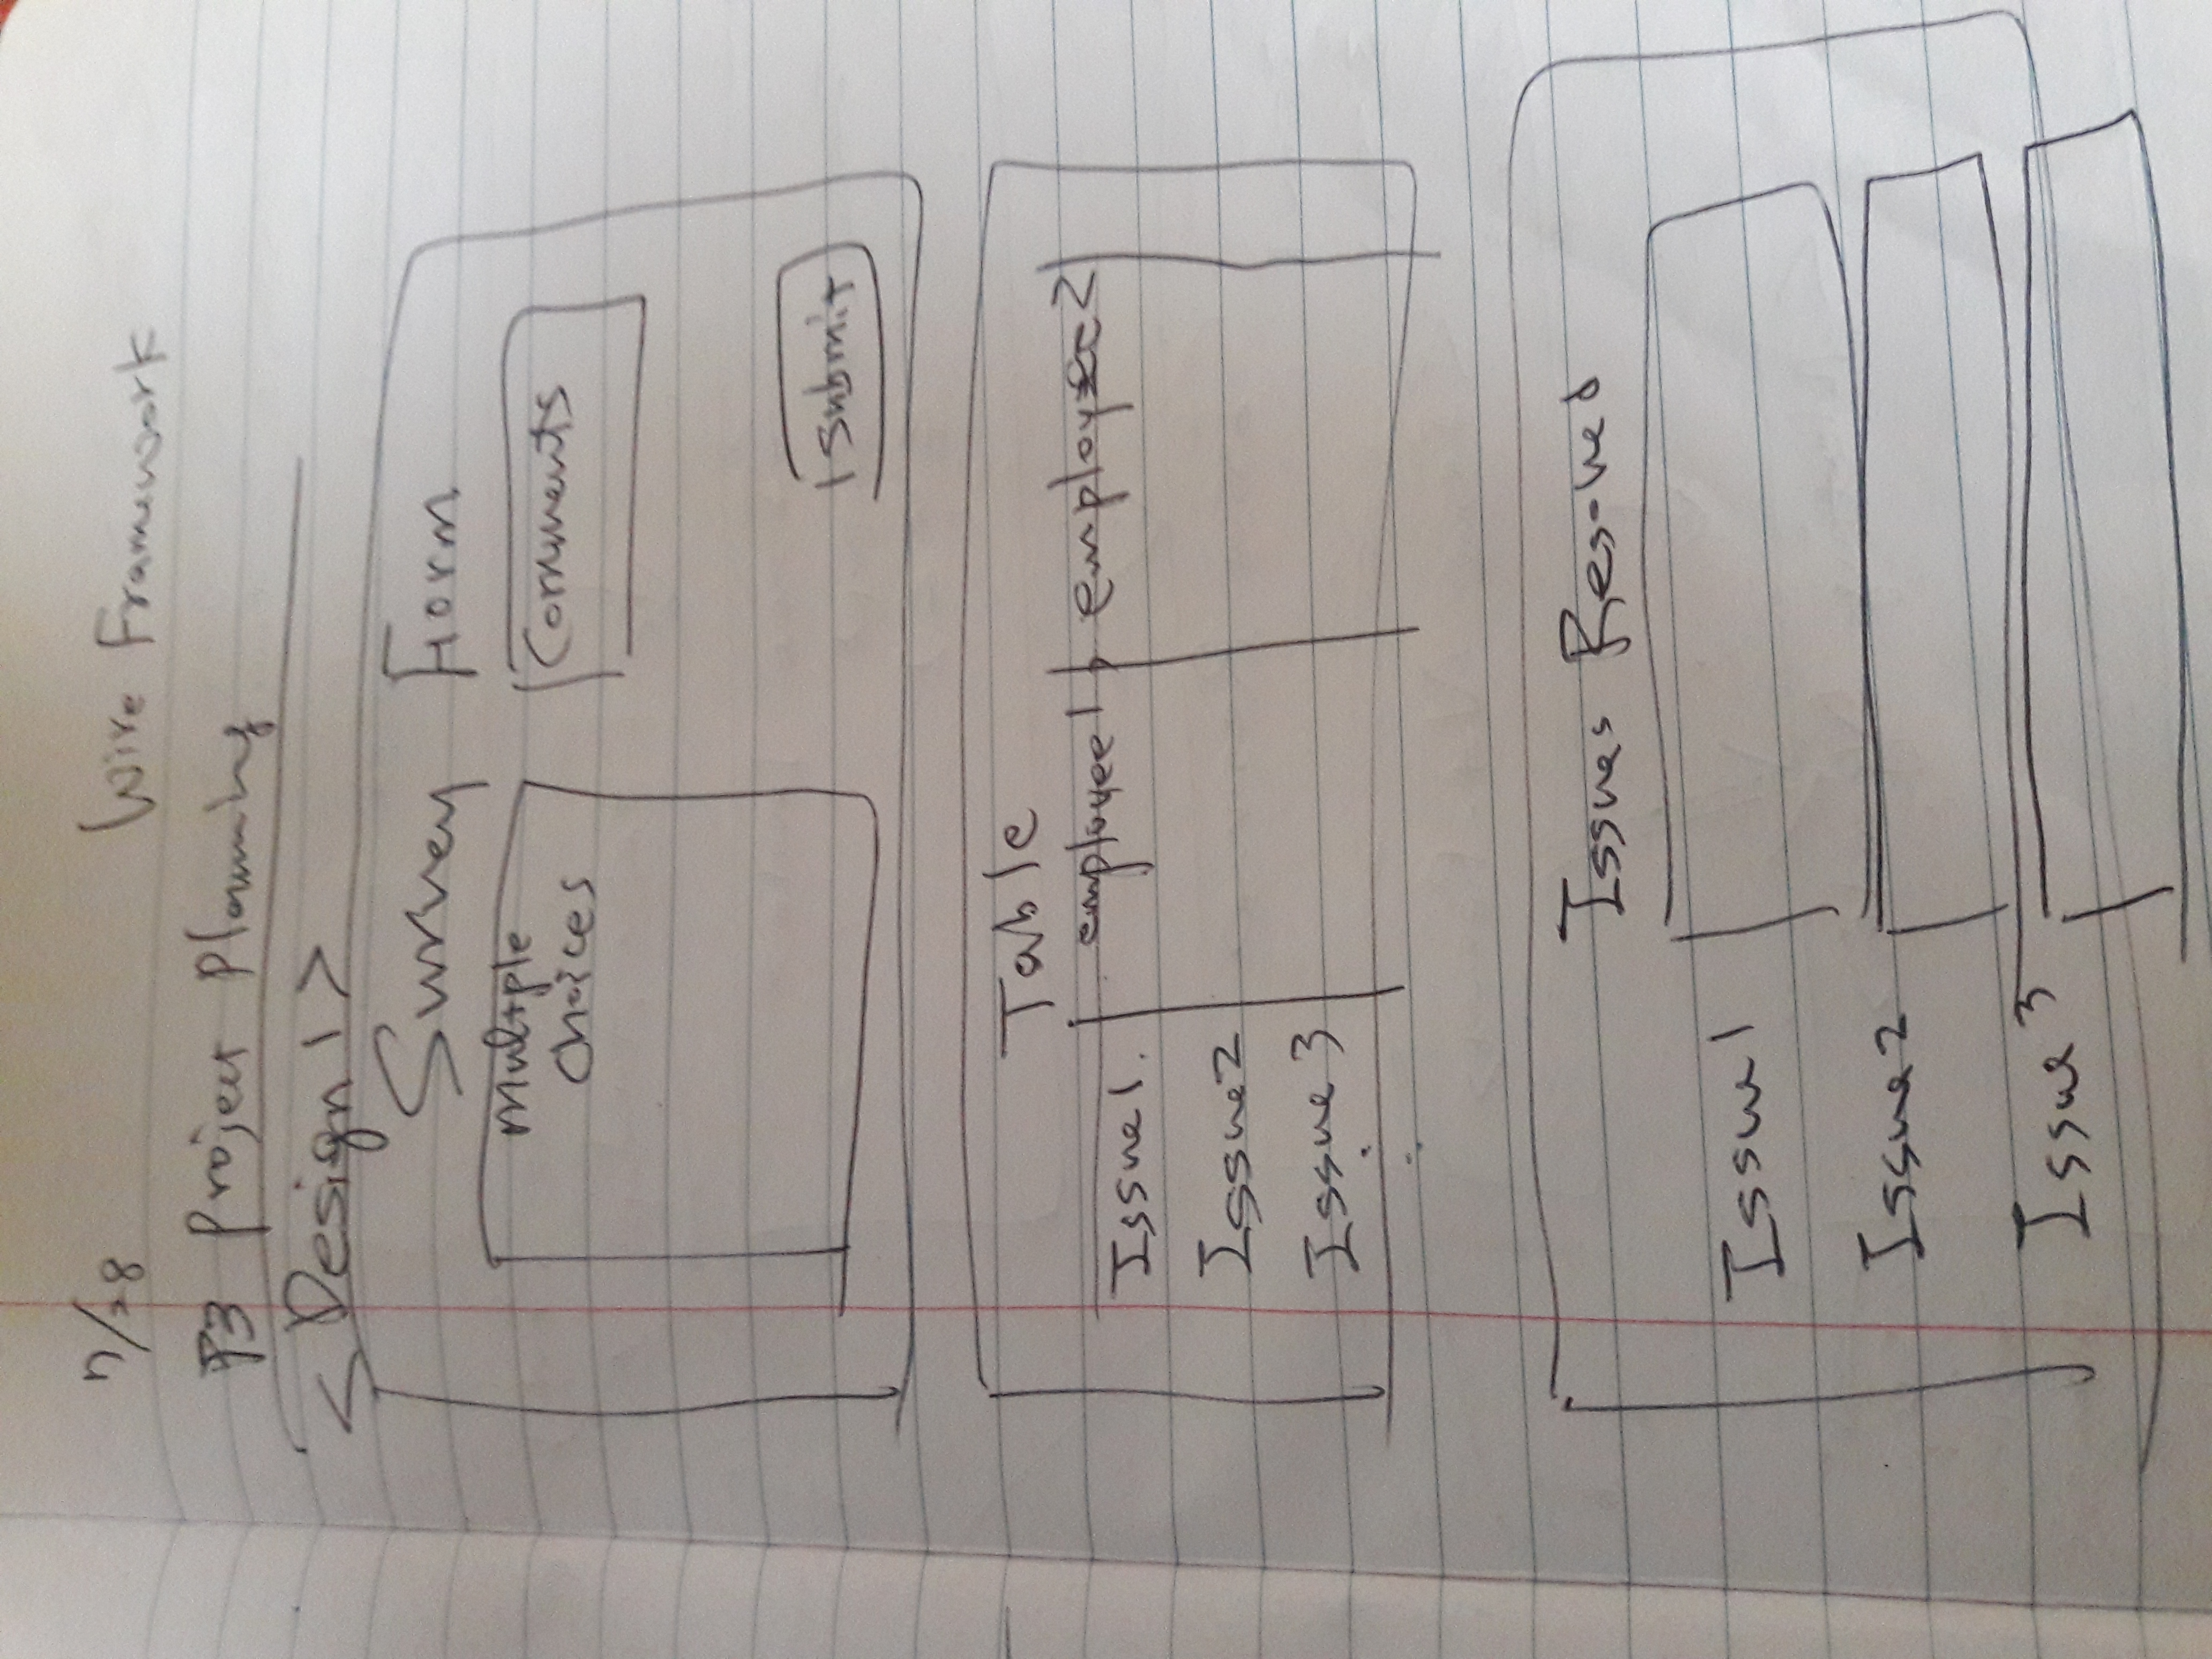 7/28
Wire Framework
P3 Project Planning
<Design 1>
Survey Form
Multiple
Choices
Comments
Submit
Table
employee1 employee2
Issue1.
Issue2
Issue 3
Issues Resolved
Issue1
Issue2
Issue 3